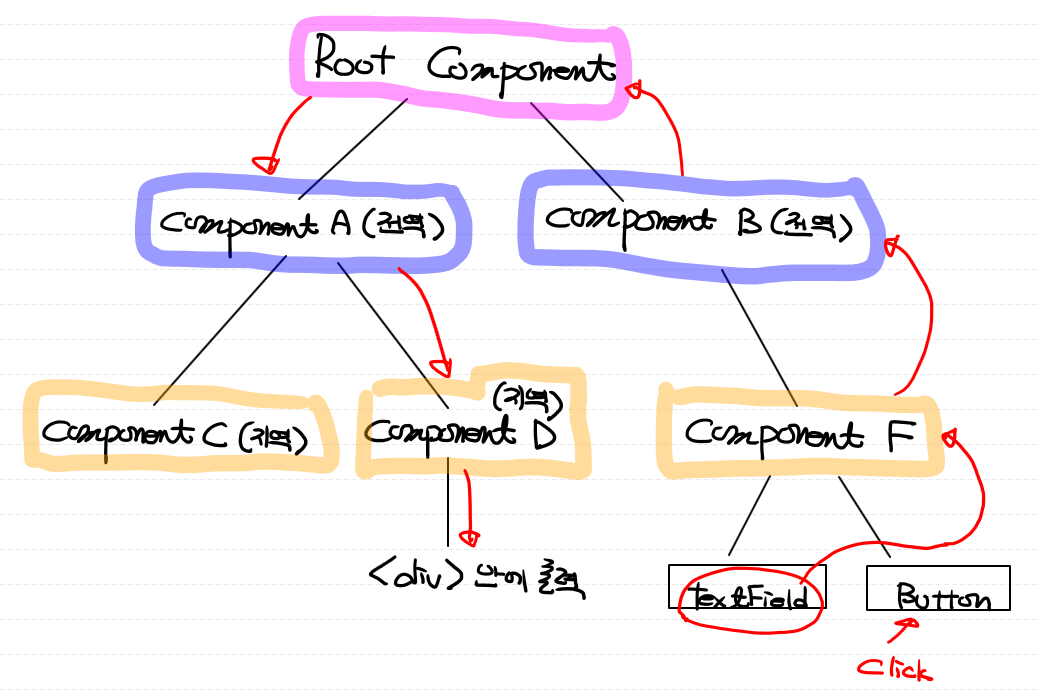 Root Component
Component A (전역)
Component B (전역)
Component C (지역)
(지역)
Component D
Component F
<div> 안에 출력
textField
Button
Click